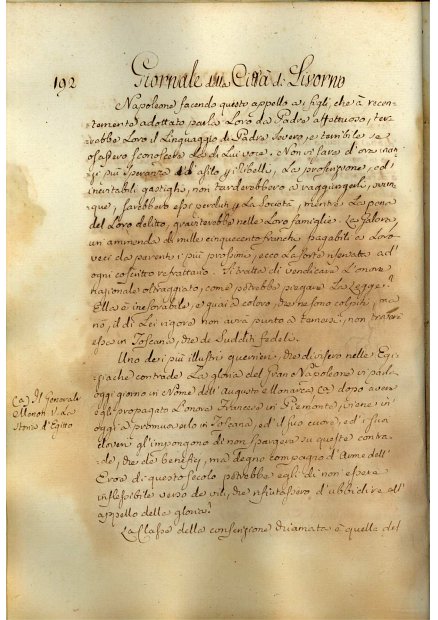 192
Giornale della Città di Livorno
Napoleone facendo questo appello a i figli, che à recen-
temente adottato parla Loro da Padre affettuoso, ter-
rebbe Loro il Linguaggio di Padre severo, e terribile se
osassero sconoscere La di Lui voce. Non vi sarà d'ora inan-
zi più speranza d'asilo p. i Ribelli, La proscrizione, ed i
inevitabili gastighi, non tarderebbero a raggiungerli, ovun-
que, sarebbero essi perduti p. La Società, mentre La pena
del Loro delitto, graviterebbe nelle Loro famiglie. La
un ammenda di mille cinquecento franchi pagabili a Loro
veci da parenti i più prossimi, ecco La sorte riservata ad
ogni coscritto refrattario. Si tratta di vendicare L'onore
Nazionale oltraggiato, come potrebbe piegare La Legge?
Ella è inesorabile, e guai a coloro, che ne sono colpiti, ma
nò, il di Lei rigore non avrà punto a temersi, non
essa in Toscana, che de Sudditi fedeli.
Uno de i più illustri guerrieri, che divisero nelle Egi-
ziache contrade La gloria del Gran Napoleone vi parla
oggi giorno in Nome dell'Augusto Monarca (a) dopo avere
egli propagato L'onore Francese in Piemonte, viene in
oggi a promuoverlo in Toscana, ed il suo cuore, ed i suoi
doveri gl'impongono di non spargere su queste contra-
de, che de benefizj, ma degno compagno d'Arme dell'
Eroe di questo secolo potrebbe egli di non essere
inflessibile verso de vili, che rifiutassero d'ubbidire all'
appello della gloria?
La Classe della conscrizione chiamata è quella del
(a) Il Generale
Menou V. La
Storia d'Egitto